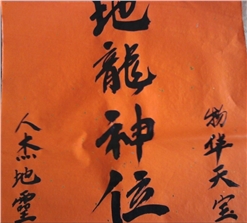 物华天宝
地龍神位
人杰地靈